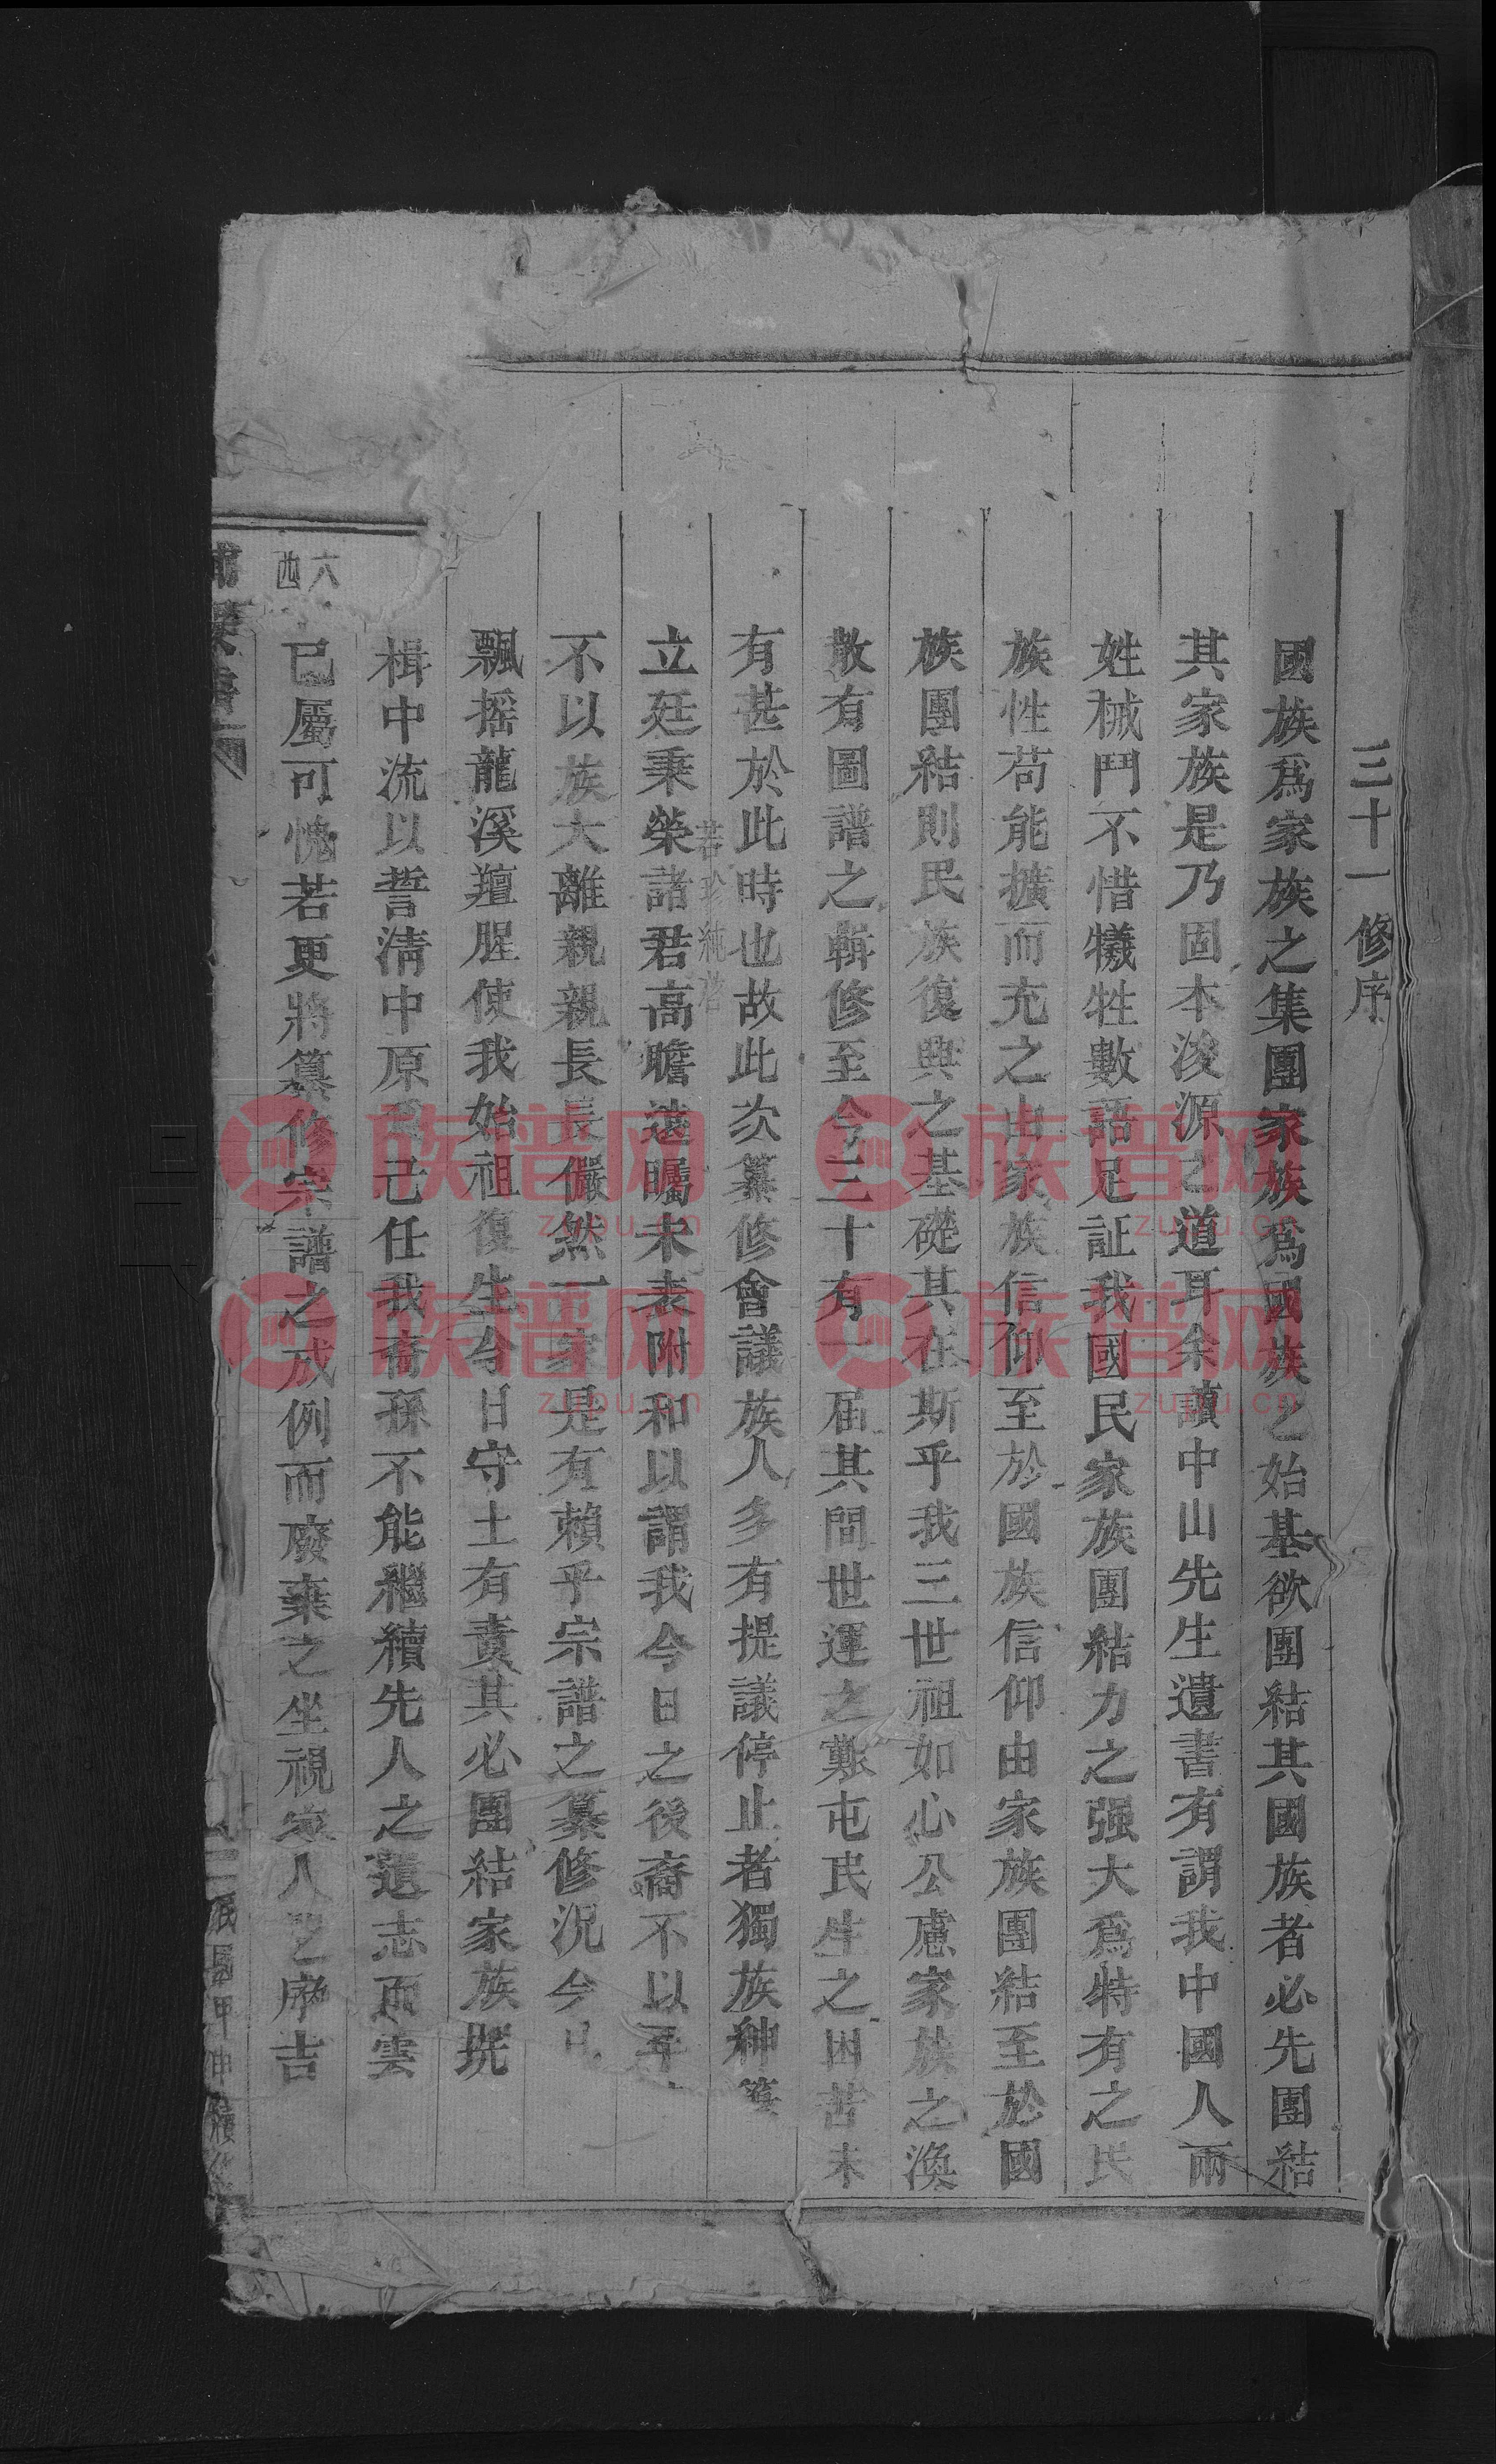 三十一修序
國族爲家族之集團家族爲國族之始基欲團結其國族者必先團結
其家族是乃固本浚源之道耳余讀中山先生遺書有謂我中國人兩
姓械鬥不惜犧牲數語足証我國民家族團結力之强大爲特有之民
族性苟能擴而充之由家族信仰至於國族信仰由家族團結至於國
族團結則民族復興之基礎其在斯乎我三世祖如心公慮家族之渙
散有圖譜之輯修至今三十有一届其間世運之艱屯民生之困苦未
有甚於此時也故此次纂修會議族人多有提議停止者獨族紳
若珍純菴
立廷秉榮諸君高瞻遠矚未表附和以謂我今日之後裔不以
不以族大離親親長長儼然一家是有賴乎宗譜之纂修況今日
飄搖龍溪羶腥使我始祖復生今日守土有責其必團結家族
楫中流以誓淸中原己任我裔孫不能繼續先人之遺志而雲
已屬可愧若更將纂修宗譜之成例而廢棄之坐視人序吉
六
西
族譜网
zupu.cn
族譜网
zupu.cn
族譜网
zupu.cn
族譜网
zupu.cn